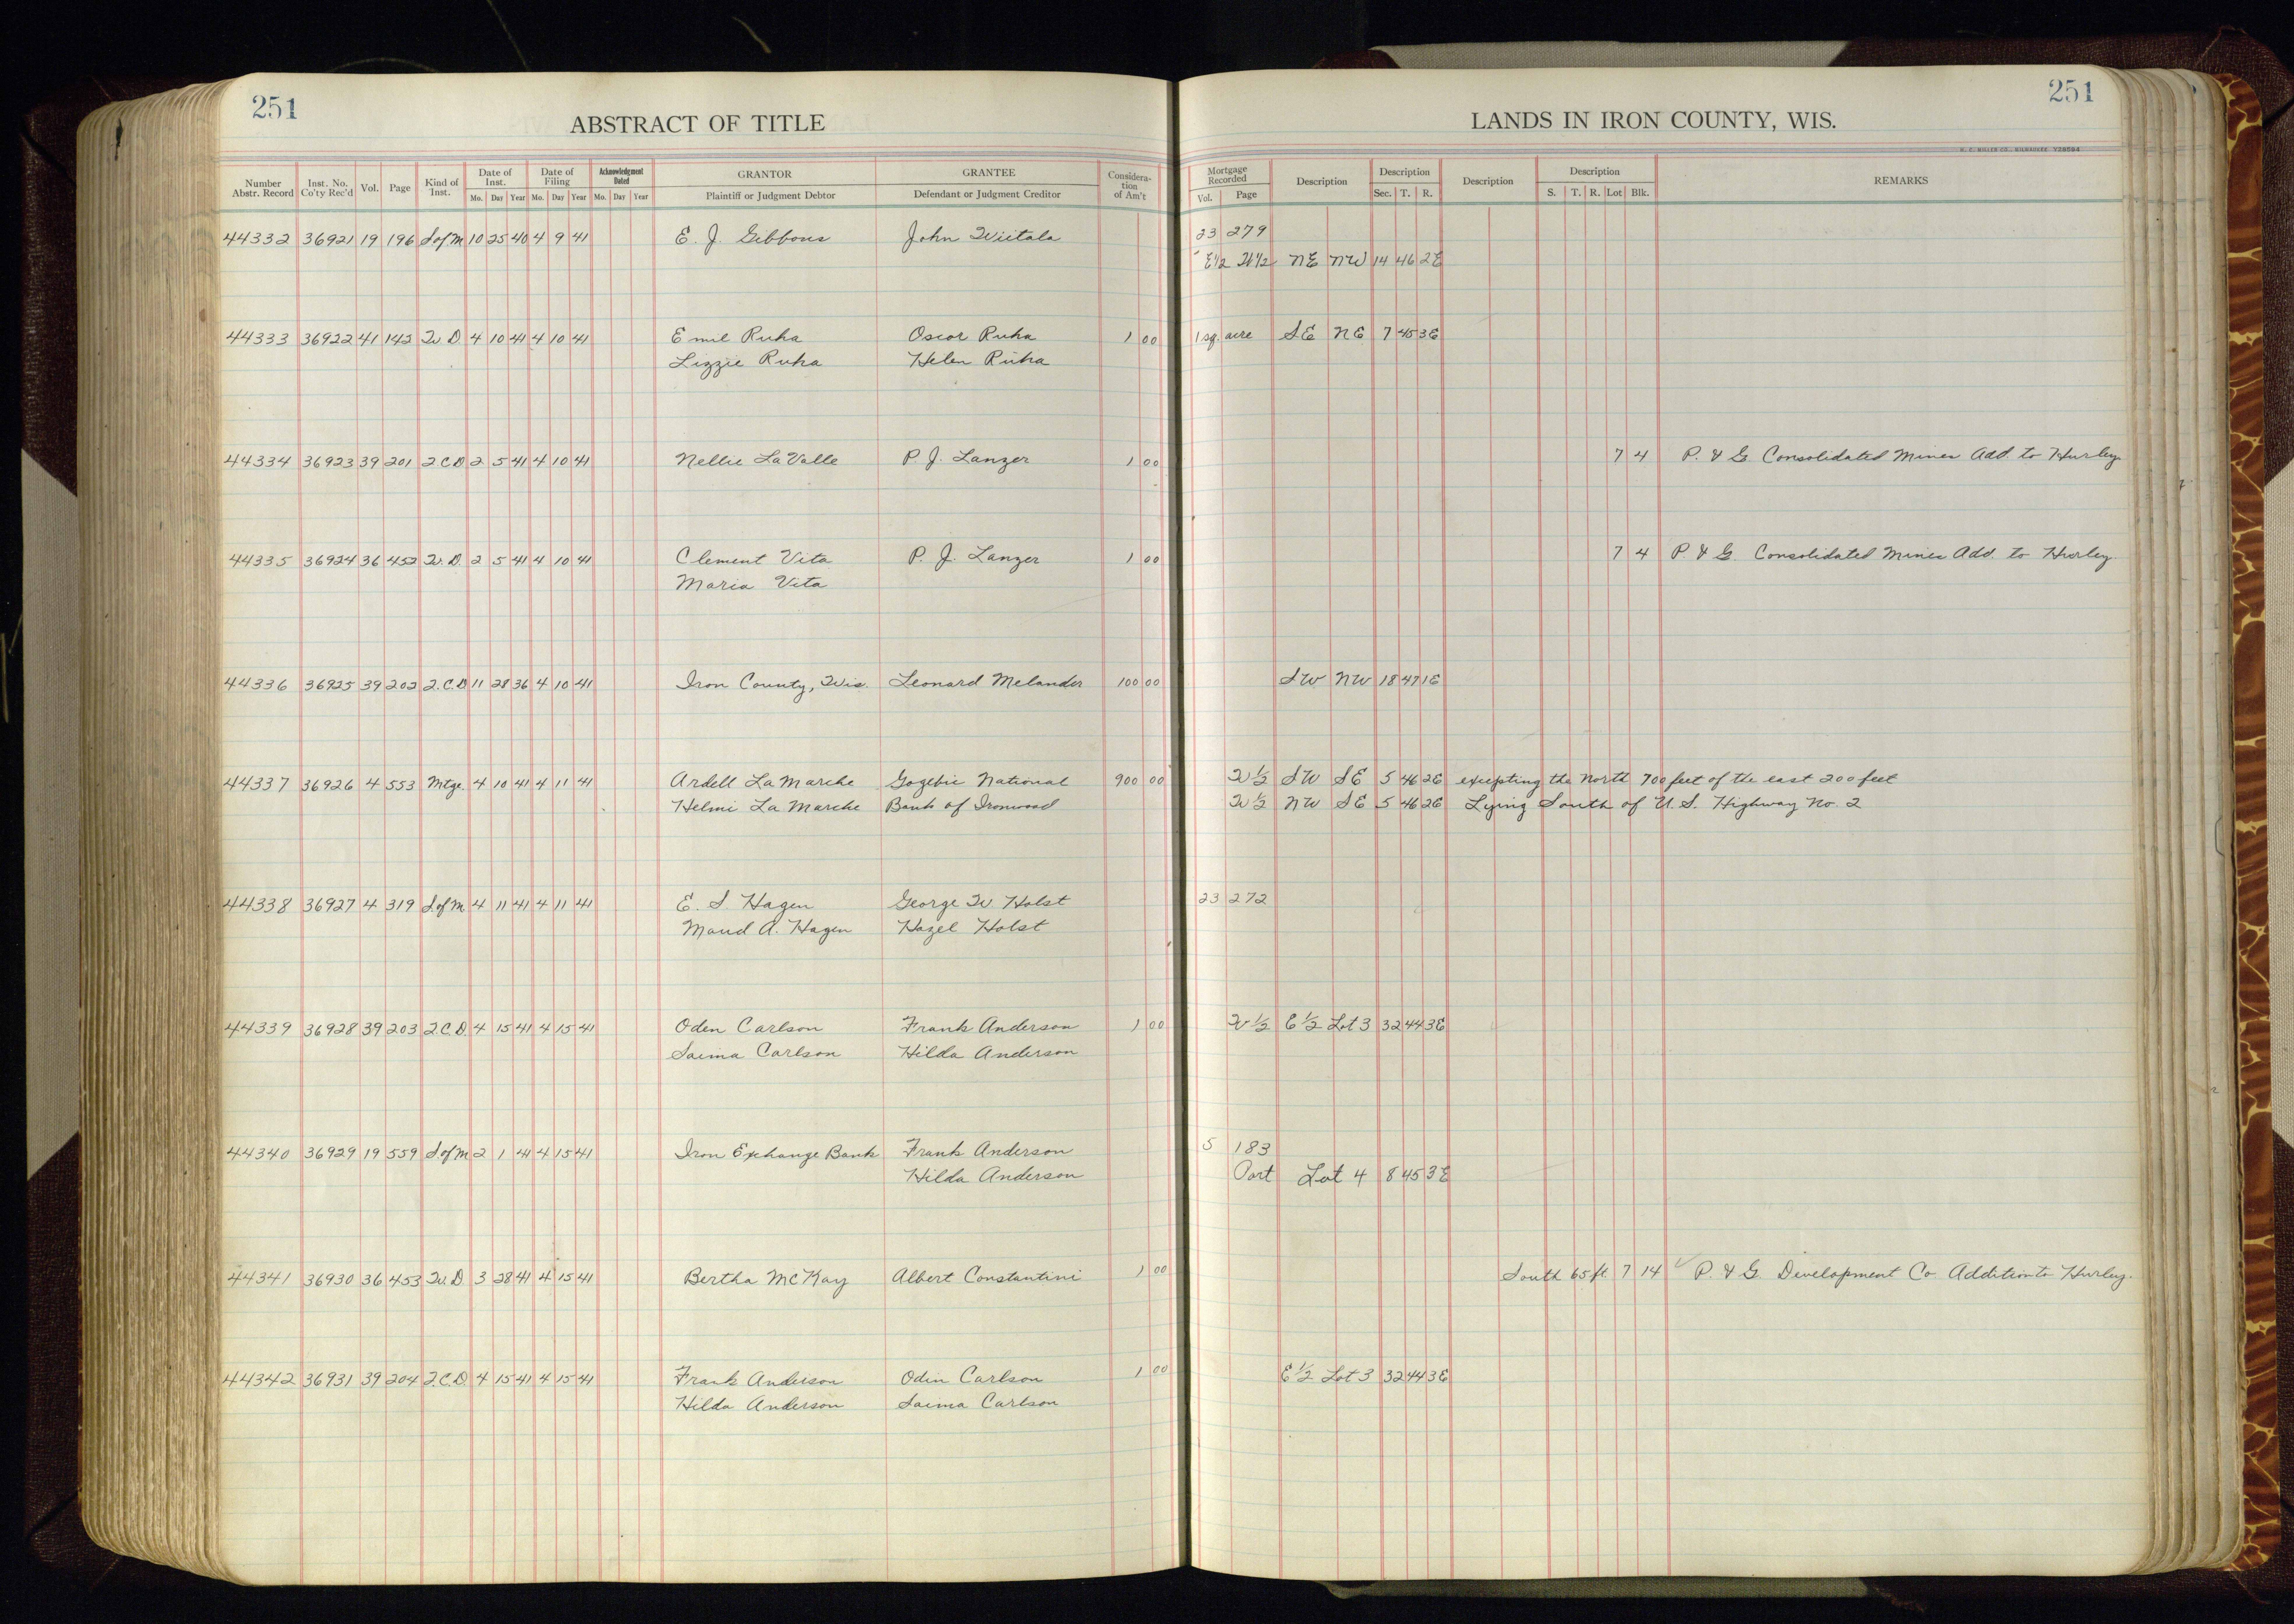 251
ABSTRACT OF TITLE
Number Abstr. Record | Inst. No. Co'ty Rec'd | Vol. | Page | Kind of Inst. | Date of Inst. Mo. Day Year | Date of Filing Mo. Day Year | Acknowledgment Dated Mo. Day Year | GRANTOR Plaintiff or Judgment Debtor | GRANTEE Defendant or Judgment Creditor | Consideration of Am't
44332 36921 19 196 S of M 10 25 40 4 9 41 E. J. Gibbons John Wiitala
44333 36922 41 142 W. D. 4 10 41 4 10 41 Emil Ruha Oscar Ruha 1 00
Lizzie Ruha Helen Ruha
44334 36923 39 201 Q C D 2 5 41 4 10 41 Nellie LaValle P. J. Lanzer 1 00
44335 36924 36 452 W. D. 2 5 41 4 10 41 Clement Vita P. J. Lanzer 1 00
Maria Vita
44336 36925 39 202 Q. C. D 11 28 36 4 10 41 Iron County, Wis. Leonard Melander 100 00
44337 36926 4 553 Mtge. 4 10 41 4 11 41 Ardell LaMarche Gogebic National 900 00
Helmi LaMarche Bank of Ironwood
44338 36927 4 319 S. of M. 4 11 41 4 11 41 E. S Hagen George W Holst
Maud A. Hagen Hazel Holst
44339 36928 39 203 Q. C. D. 4 15 41 4 15 41 Oden Carlson Frank Anderson 1 00
Saima Carlson Hilda Anderson
44340 36929 19 559 S. of M 2 1 41 4 15 41 Iron Exchange Bank Frank Anderson
Hilda Anderson
44341 36930 36 453 W. D 3 28 41 4 15 41 Bertha McKay Albert Constantini 1 00
44342 36931 39 204 Q. C. D. 4 15 41 4 15 41 Frank Anderson Odin Carlson 1 00
Hilda Anderson Saima Carlson
251
LANDS IN IRON COUNTY, WIS.
H. C. MILLER CO., MILWAUKEE Y28594
Mortgage Recorded Vol. Page | Description | Description Sec. T. R. | Description | Description S. T. R. Lot Blk. | REMARKS
23 279
E1/2 W1/2 NE NW 14 46 2E
1 sq. acre SE NE 7 45 3E
7 4 P. & G. Consolidated Mines Add. to Hurley.
7 4 P & G. Consolidated Mines Add. to Hurley.
SW NW 18 47 1E
W 1/2 SW SE 5 46 2E excepting the North 700 feet of the east 200 feet
W 1/2 NW SE 5 46 2E Lying South of U. S. Highway No. 2
23 272
W 1/2 E 1/2 Lot 3 32 44 3E
5 183
Part Lot 4 8 45 3E
South 65 ft 7 14 P. & G. Development Co. Addition to Hurley.
E 1/2 Lot 3 32 44 3E